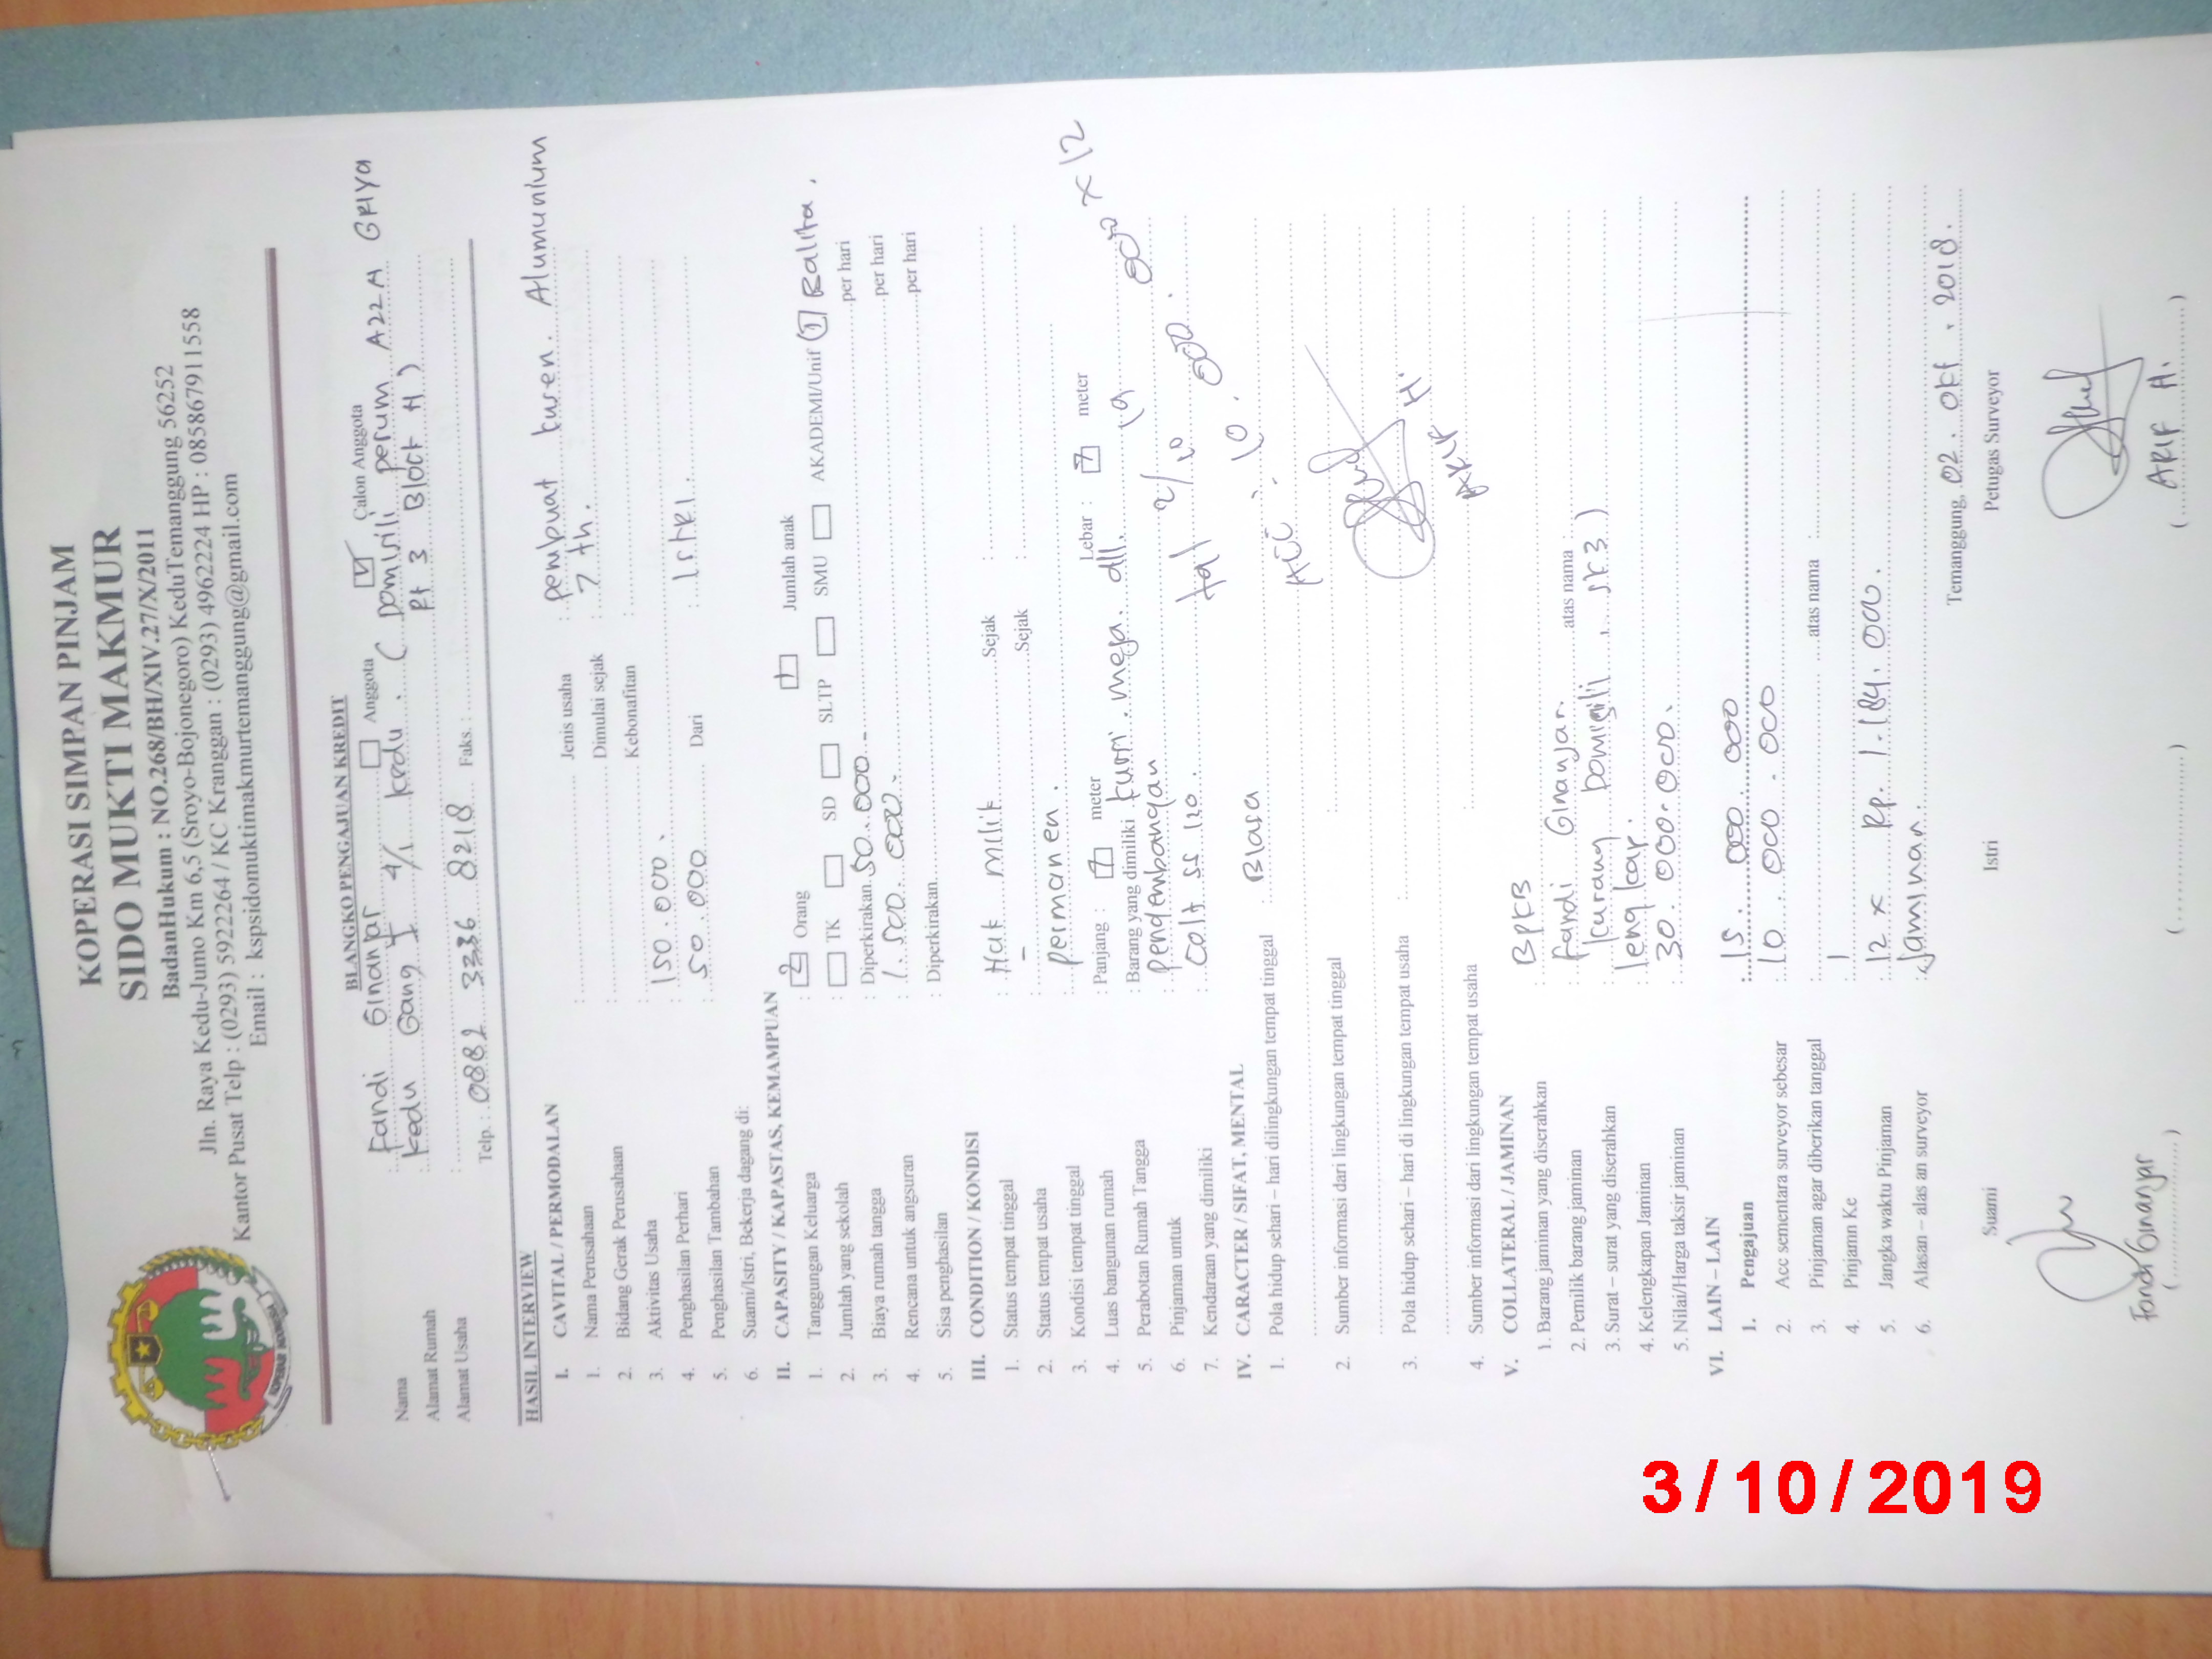 KOPERASI SIMPAN PINJAM
SIDO MUKTI MAKMUR
BadanHukum : NO.268/BH/XIV.27/X/2011
Jln. Raya Kedu-Jumo Km 6,5 (Sroyo-Bojonegoro) KeduTemanggung 56252
Kantor Pusat Telp : (0293) 5922264 / KC Kranggan : (0293) 4962224 HP : 085867911558
Email : kspsidomuktimakmurtemanggung@gmail.com
KOPERASI INDONESIA
BLANGKO PENGAJUAN KREDIT
Anggota Calon Anggota
Nama : Fandi Ginanjar
Alamat Rumah : Kedu Gang I 4/1 Kedu. ( Domisili perum AZZA GRIYA
Alamat Usaha : Rt 3 Block H )
Telp. : 0882 3336 8218 Faks. :
HASIL INTERVIEW
I. CAVITAL / PERMODALAN
1. Nama Perusahaan : Jenis usaha : pembuat kusen. Alumunium
2. Bidang Gerak Perusahaan : Dimulai sejak : 7 th.
3. Aktivitas Usaha : Kebonafitan :
4. Penghasilan Perhari : 150.000.
5. Penghasilan Tambahan : 50.000 Dari : Istri.
6. Suami/Istri, Bekerja dagang di:
II. CAPASITY / KAPASTAS, KEMAMPUAN
1. Tanggungan Keluarga : 2 Orang 1 Jumlah anak
2. Jumlah yang sekolah : TK SD SLTP SMU AKADEMI/Unif 1 Balita.
3. Biaya rumah tangga : Diperkirakan 50.000.- per hari
4. Rencana untuk angsuran : 1.500.000.- per hari
5. Sisa penghasilan : Diperkirakan per hari
III. CONDITION / KONDISI
1. Status tempat tinggal : Hak milik Sejak :
2. Status tempat usaha : - Sejak :
3. Kondisi tempat tinggal : permanen.
4. Luas bangunan rumah : Panjang : 7 meter Lebar : 7 meter
5. Perabotan Rumah Tangga : Barang yang dimiliki kursi. meja. dll.
6. Pinjaman untuk : pengembangan
7. Kendaraan yang dimiliki : Colt SS 120.
IV. CARACTER / SIFAT, MENTAL
1. Pola hidup sehari – hari dilingkungan tempat tinggal : Biasa
2. Sumber informasi dari lingkungan tempat tinggal :
3. Pola hidup sehari – hari di lingkungan tempat usaha :
4. Sumber informasi dari lingkungan tempat usaha :
x 12
2/10
ACC. 10.000.000.
ARIF H.
V. COLLATERAL / JAMINAN
1. Barang jaminan yang diserahkan : BPKB
2. Pemilik barang jaminan : Fandi Ginanjar. atas nama :
3. Surat – surat yang diserahkan : (kurang Domisili, SK3)
4. Kelengkapan Jaminan : lengkap.
5. Nilai/Harga taksir jaminan : 30.000.000.
VI. LAIN – LAIN
1. Pengajuan : 15.000.000
2. Acc sementara surveyor sebesar : 10.000.000
3. Pinjaman agar diberikan tanggal : atas nama :
4. Pinjamn Ke : 1
5. Jangka waktu Pinjaman : 12 x Rp. 1.184.000.
6. Alasan – alas an surveyor : Jaminan.
Temanggung, 02. Okt. 2018.
Suami Istri Petugas Surveyor
Fandi Ginanjar
( ) ( ) ( ARIF H. )
3/10/2019